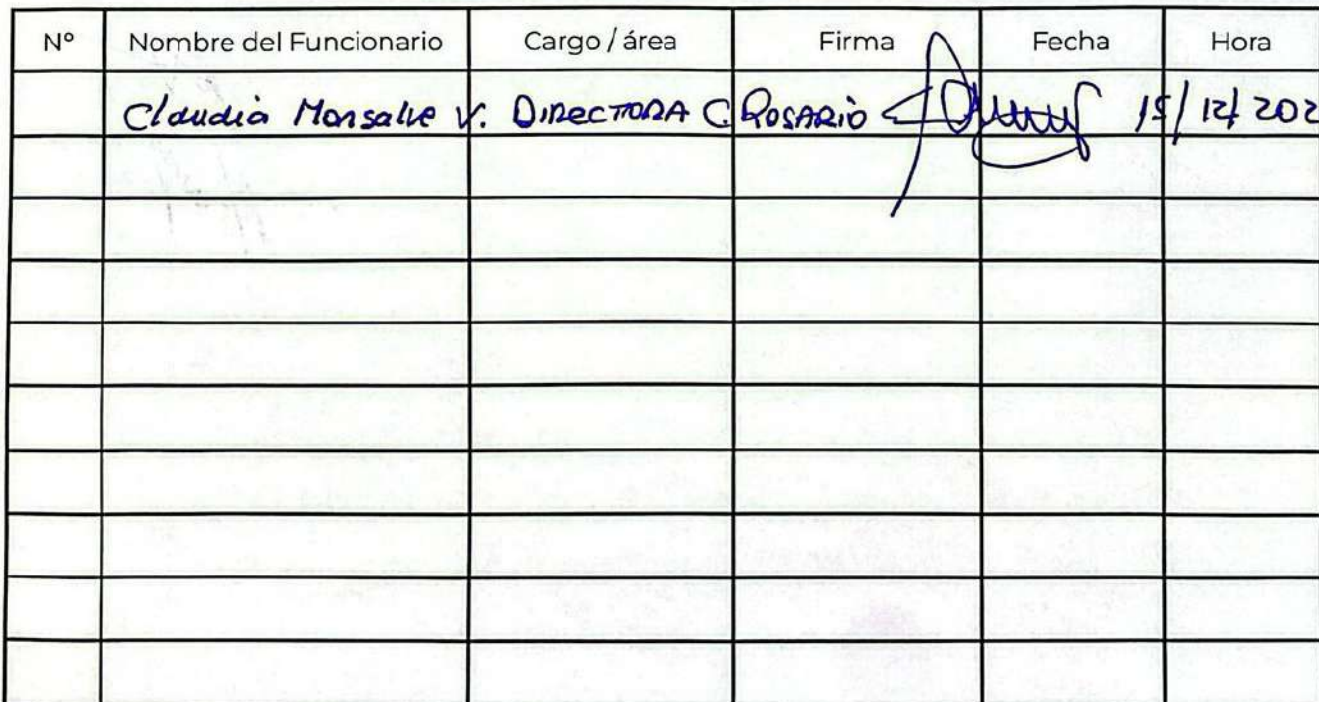 N° Nombre del Funcionario Cargo / área Firma Fecha Hora
Claudia Monsalve V. DIRECTORA C. ROSARIO 15/12/202